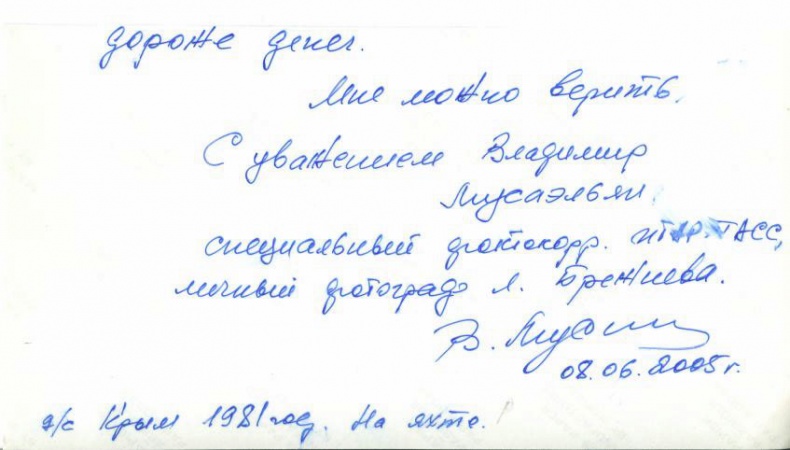 дороже денег.
Мне можно верить.
С уважением Владимир
Мусаэльян.
специальный фотокорр. ИТАР-ТАСС,
личный фотограф Л. Брежнева.
В. Муса
08.06.2005 г.
Крым 1981 год. На яхте.